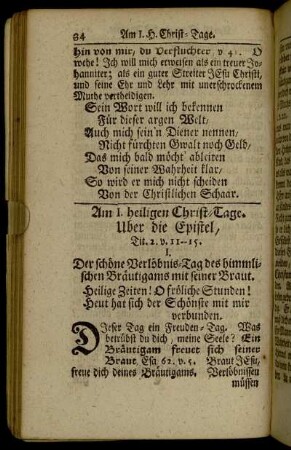 84 Am I. H. Christ-Tage.
hin von mir, du Verfluchter, v. 41. O
wehe! Ich will mich erweisen als ein treuer Jo-
hanniter; als ein guter Streiter JEsu Christi,
und seine Ehr und Lehr mit unerschrockenem
Muthe vertheidigen.
Sein Wort will ich bekennen
Für dieser argen Welt/
Auch mich sein'n Diener nennen/
Nicht fürchten Gwalt noch Geld/
Das mich bald möcht' ableiten
Von seiner Wahrheit klar/
So wird er mich nicht scheiden
Von der Christlichen Schaar.
Am I. heiligen Christ-Tage.
Uber die Epistel/
Tit. 2. v. 11--15.
I.
Der schöne Verlöbnis-Tag des himmli-
schen Bräutigams mit seiner Braut.
Heilige Zeiten! O fröliche Stunden!
Heut hat sich der Schönste mit mir
verbunden.
DJeser Tag ein Freuden-Tag. Was
betrübst du dich, meine Seele? Ein
Bräutigam freuet sich seiner
Braut, Esa. 62. v. 5. Braut JEsu,
freue dich deines Bräutigams. Verlöbnissen
müssen